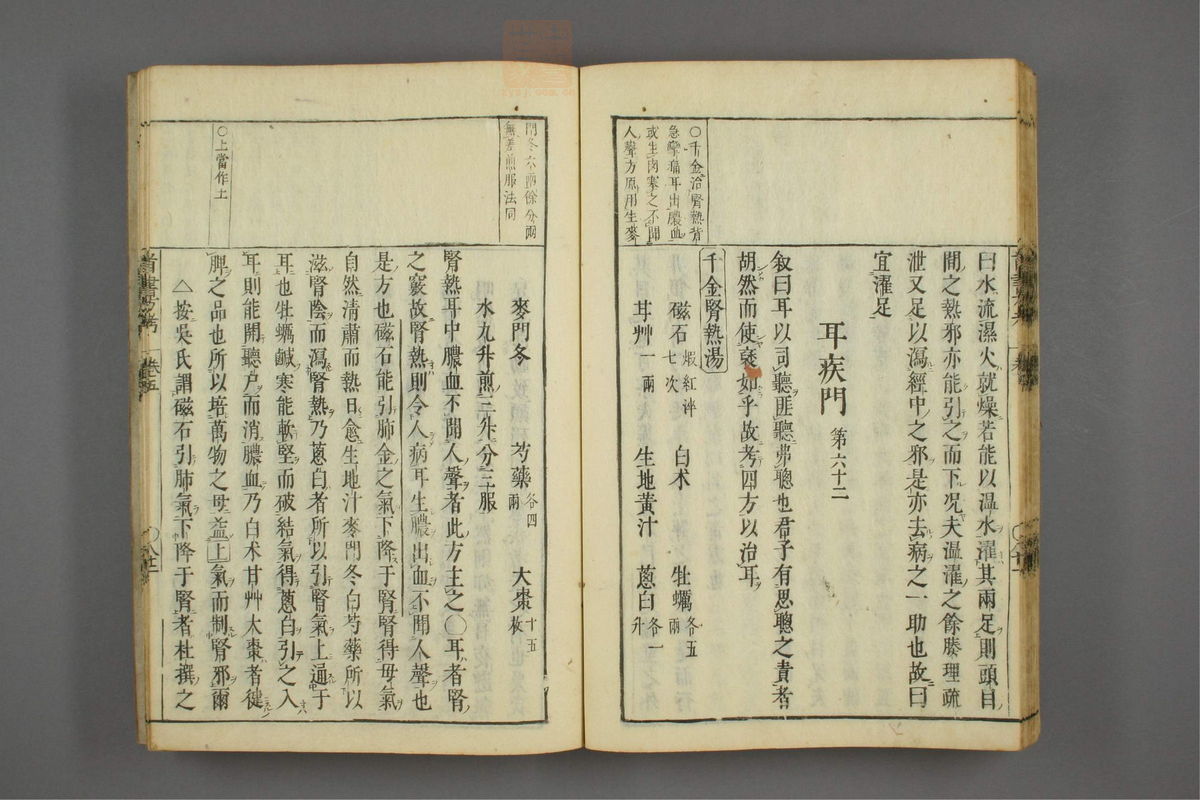 ○千金治腎熱背
急攣痛耳出膿血
或生肉塞之不聞
人聲方原用生麥
曰水流濕火就燥若能以溫水濯其兩足則頭目
間之熱邪亦能引之而下况夫溫濯之餘腠理疏
泄又足以瀉經中之邪是亦去病之一助也故曰
宜濯足
耳疾門 第六十二
叙曰耳以司聽匪聽弗聰也君子有思聰之責者
胡然而使褎如乎故考四方以治耳
千金腎熱湯
磁石 煆紅淬七次 白术 牡蠣 各五兩
甘艸 一兩 生地黃汁 蔥白 各一升
門冬六兩餘分兩
無差煎服法同
○上當作土
麥門冬 芍藥 各四兩 大棗 十五枚
水九升煎三升分三服
腎熱耳中膿血不聞人聲者此方主之○耳者腎
之竅故腎熱則令人病耳生膿出血不聞人聲也
是方也磁石能引肺金之氣下降于腎腎得母氣
自然清肅而熱日愈生地汁麥門冬白芍藥所以
滋腎陰而瀉腎熱乃蔥白者所以引腎氣上通于
耳也牡蠣鹹寒能軟堅而破結氣得蔥白引之入
耳則能開聽戶而消膿血乃白术甘艸大棗者健
脾之品也所以培萬物之母益上氣而制腎邪爾
△按吳氏謂磁石引肺氣下降于腎者杜撰之
卷五